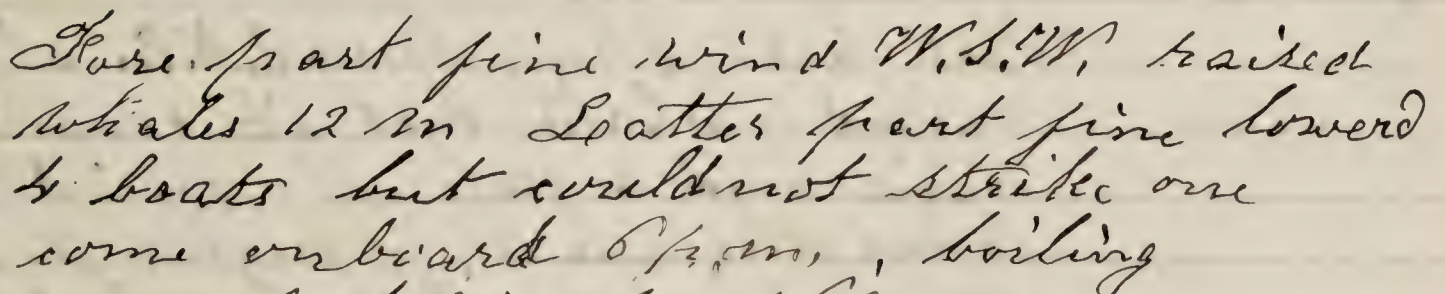 Fore part fine wind W.S.W. raised
whales 12 m Leatter part fine lowerd
4 boats but could not strike one
come onboard 6 p.m., boiling